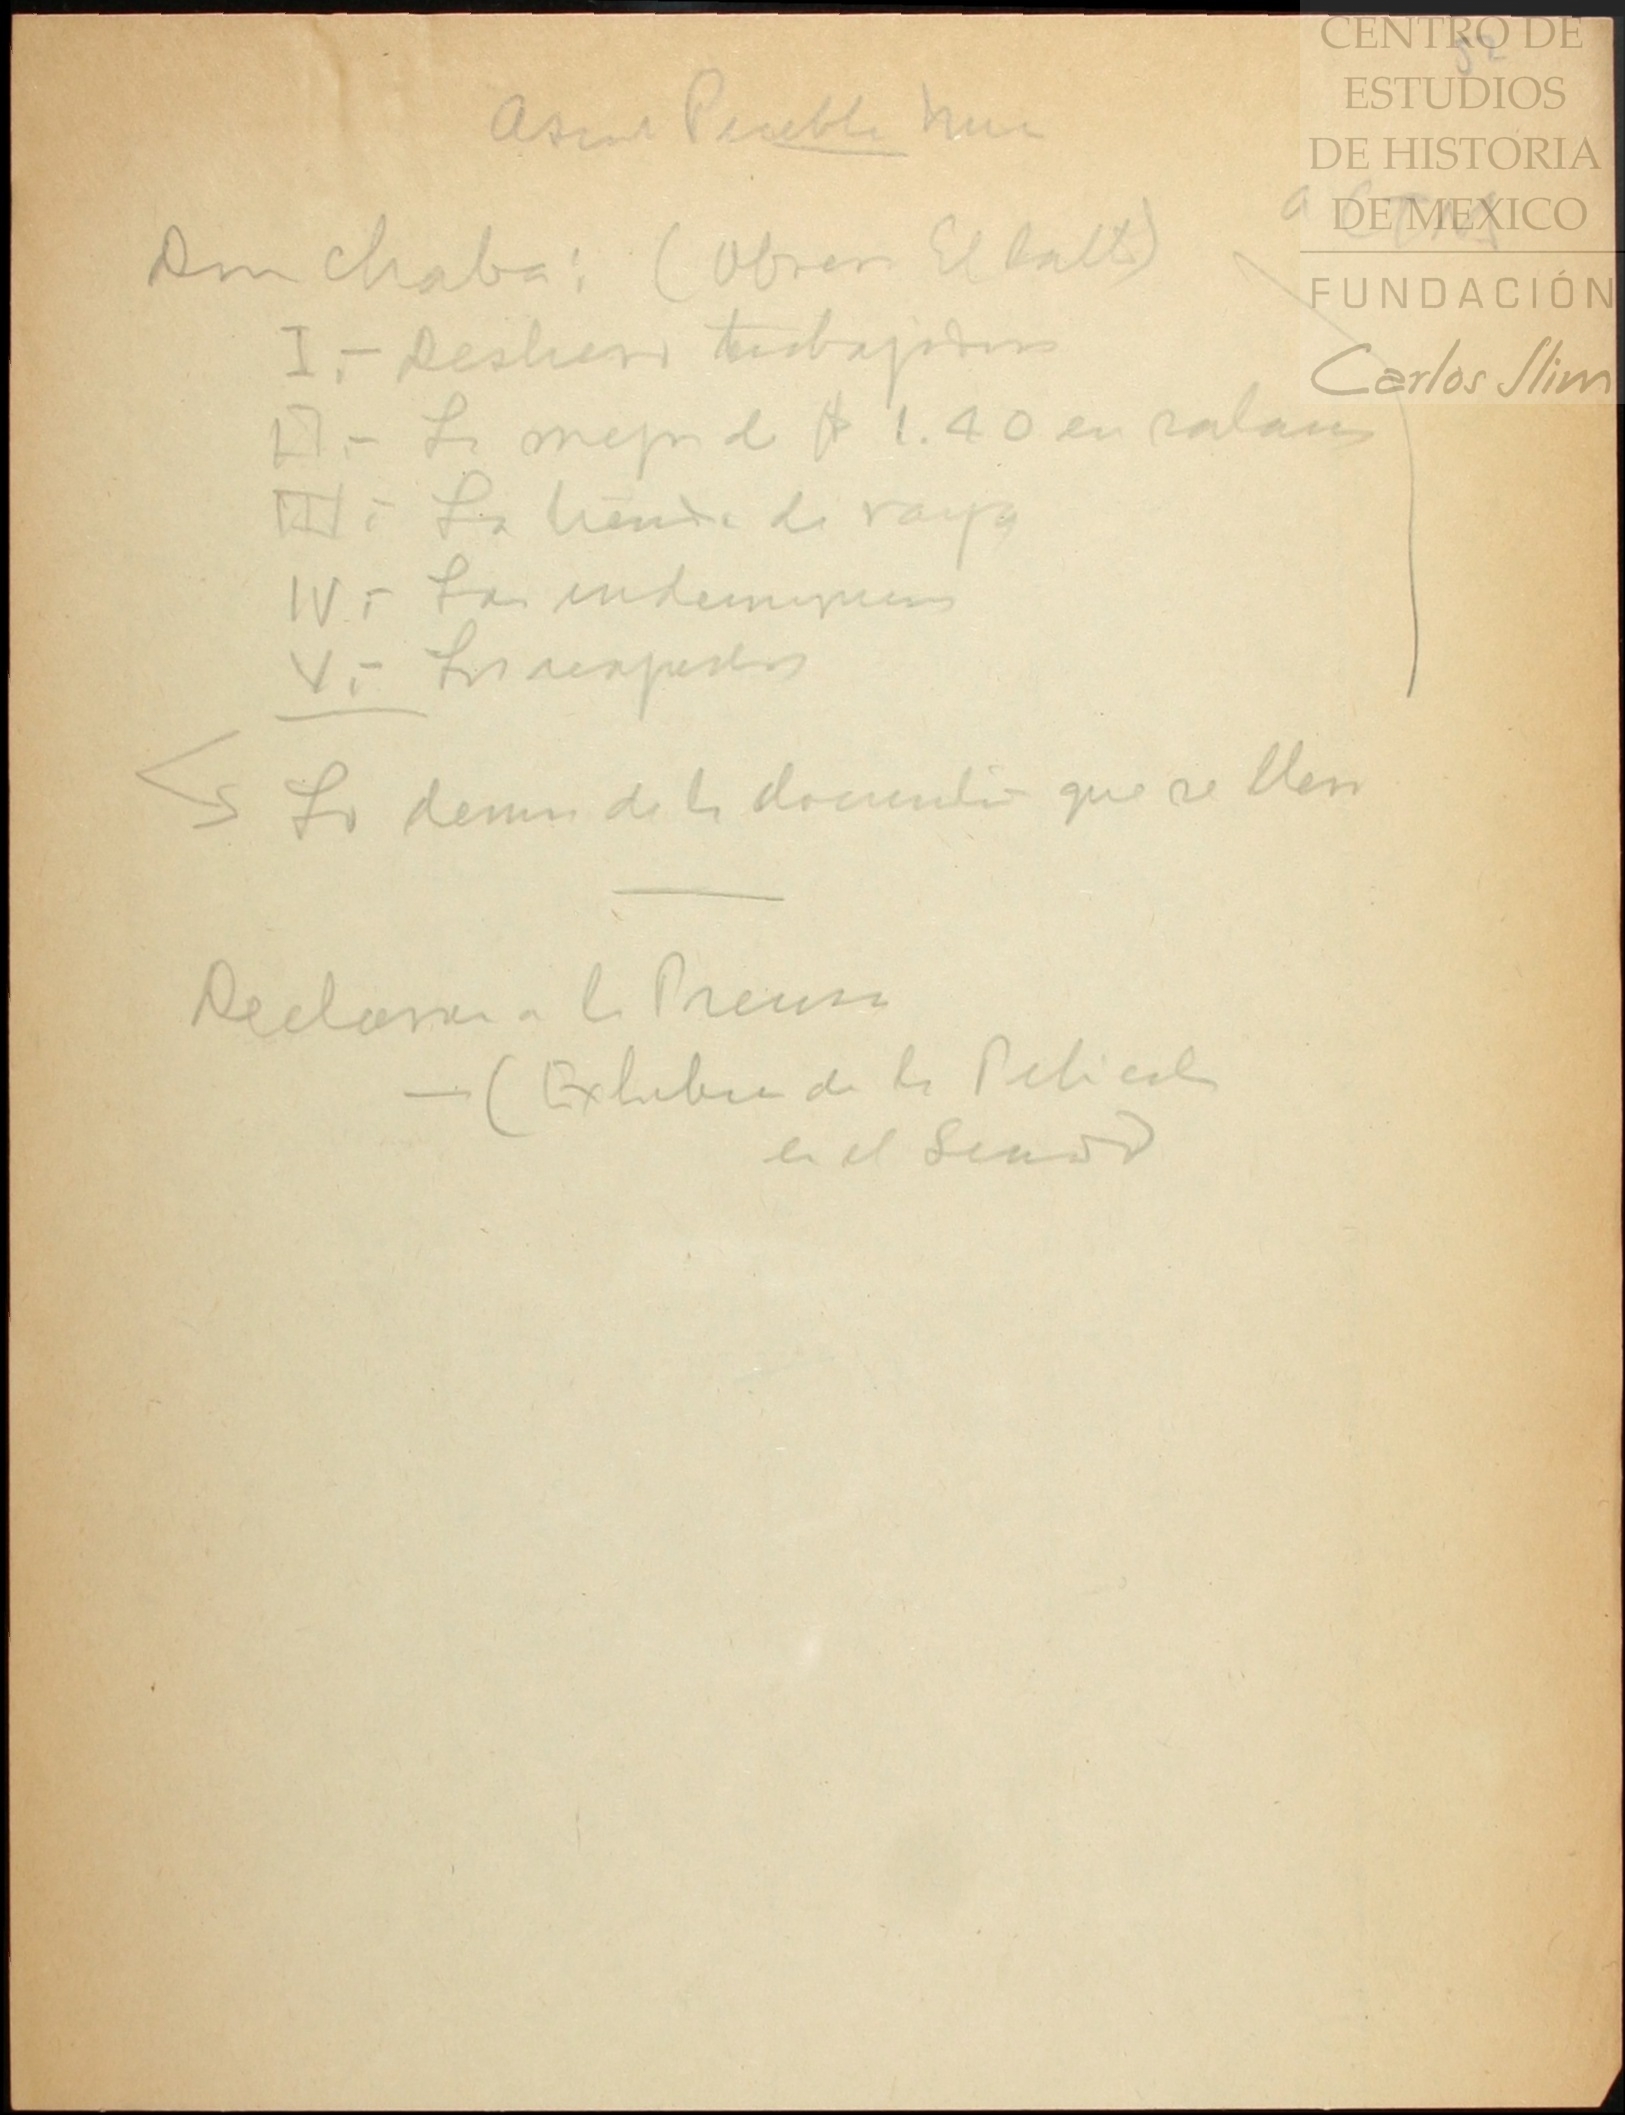 CENTRO DE
ESTUDIOS
DE HISTORIA
DE MEXICO
FUNDACIÓN
Carlos Slim
52
Pueblo
a CTM
Don Chaba: (Obrero El
I.- Destierro trabajadores
II.- La mejora de $ 1.40 en salarios
III.- La tienda de raya
IV.- Las indemnizaciones
V.- Los
Lo demas de la documentación que se lleva
Declaración a la Prensa
— (Exhibición de la Película
en el Senado)